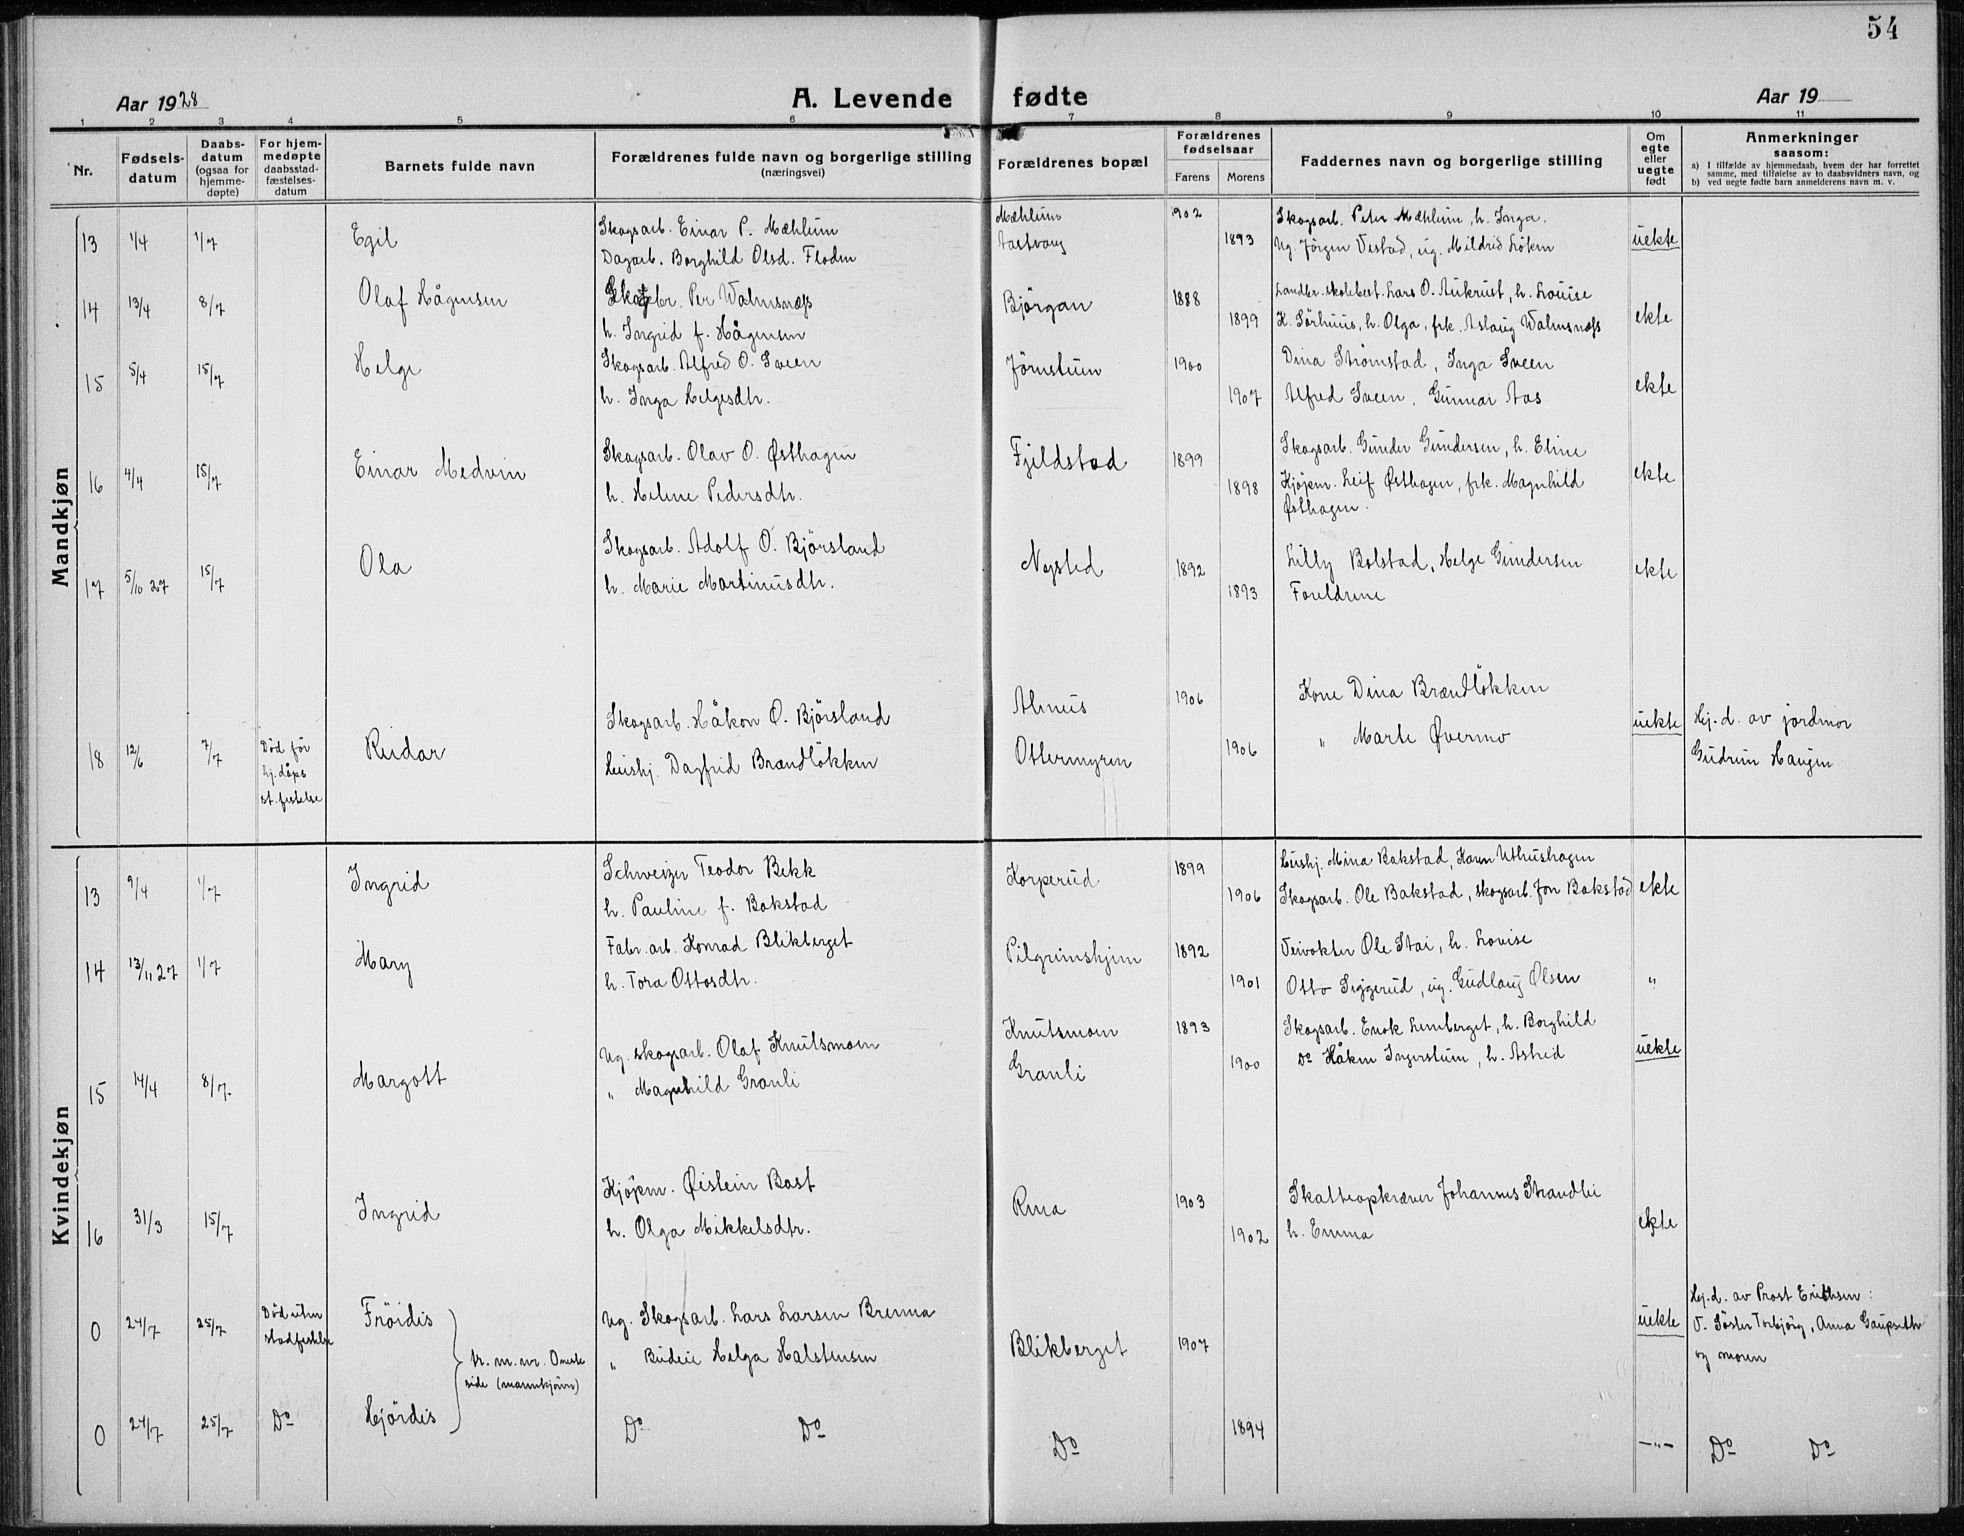 54
Aar 1928 A. Levende fødte Aar 19
1 2 3 4 5 6 7 8 9 10 11
Nr.
Fødsels-
datum
Daabs-
datum
(ogsaa for
hjemme-
døpte)
For hjem-
medøpte
daabsstad-
fæstelses-
datum
Barnets fulde navn
Forældrenes fulde navn og borgerlige stilling
(næringsvei)
Forældrenes bopæl
Forældrenes
fødselsaar
Farens Morens
Faddernes navn og borgerlige stilling
Om
egte
eller
uegte
født
Anmerkninger
saasom:
a) I tilfælde av hjemmedaab, hvem der har forrettet
samme, med tilføielse av to daabsvidners navn, og
b) ved uegte fødte barn anmelderens navn m. v.
Mandkjøn
13 1/4 1/7 Egil
Skogsarb. Einar P. Mæhlum
Dagarb. Borghild Olsd. Floden
Mæhlum
Aastvang
1902
1893
Skogsarb. Peter Mæhlum, h. Inga.
Ug. Jörgen Vestad, ug. Mildrid Löken
uekte
14 13/4 8/7 Olaf Hågensen
Per Walmsnæss
h. Ingrid f. Hågensen
Björgan
1888
1899
Landbr. skolebest. Lars O. Aukrust, h. Louise
K. Sörhuus, h. Olga, frk. Aslaug Walmsnæss
ekte
15 5/4 15/7 Helge
Skogsarb. Alfred O. Sveen
h. Inga Helgesdtr.
Jörnstuen
1900
1907
Dina Strömstad, Inga Sveen
Alfred Sveen, Gunnar Aas
ekte
16 4/4 15/7 Einar Medvin
Skogsarb. Olav O. Østhagen
h. Helene Pedersdtr.
Fjeldstad
1899
1898
Skogsarb. Gunder Gundersen, h. Eline
Kjöpm. Leif Østhagen, frk. Magnhild
Østhagen.
ekte
17 5/10 27 15/7 Ola
Skogsarb. Adolf O. Björsland
h. Marie Martinusdtr.
Nysted
1892
1893
Lilly Bolstad, Helge Gundersen
Foreldrene
ekte
18 12/6 7/7
Död för
hj. dåps
st. festelse
Reidar
Skogsarb. Håkon O. Björsland
Hushj. Dagfrid Brændlökken
Atmus
Ottermyren
1906
1906
Kone Dina Brændlökken
" Marte Øvermo
uekte
Hj. d. av jordmor
Gudrun Haugen
Kvindekjøn
13 9/4 1/7 Ingrid
Schweizer Teodor Bekk
h. Pauline f. Bakstad
Korperud
1899
1906
Hushj. Mina Bakstad, Karen Uthushagen
Skogsarb. Ole Bakstad, skogsarb. Jon Bakstad
ekte
14 13/11 27 1/7 Mary
Fabr. arb. Konrad Blikberget
h. Tora Ottosdtr.
Pilgrimshjem
1892
1901
Veivokter Ole Stai, h. Lovise
Otto Siggerud, ug. Gudlaug Olsen
"
15 14/4 8/7. Margott
Ug. skogsarb. Olaf Knutsmoen
" Magnhild Granli
Knutsmoen
Granli
1893
1900
Skogsarb. Enok Lemberget, h. Borghild
Do Håken Ingerstuen, h. Astrid
uekte
16 31/3 15/7 Ingrid
Kjöpm. Øistein Bast
h. Olga Mikkelsdtr.
Rena
1903
1902
Skatteopkræver Johannes Strandli
h. Emma
ekte
0 24/7 25/7
Död uten
stadfestelse
Fröidis
Ug. Skogsarb. Lars Larsen Brenna
" Budeie Helga Halstensen
Blikberget
1907
uekte
Hj. d. av Prost Erichsen:
V. Söster Torbjörg, Anna Gaupseth
og moren
Tr. m. nr. 0 neste
side (mannkjönn)
0 24/7 25/7 Do Hjördis
Do Do
Do
1894
—"—
Do Do